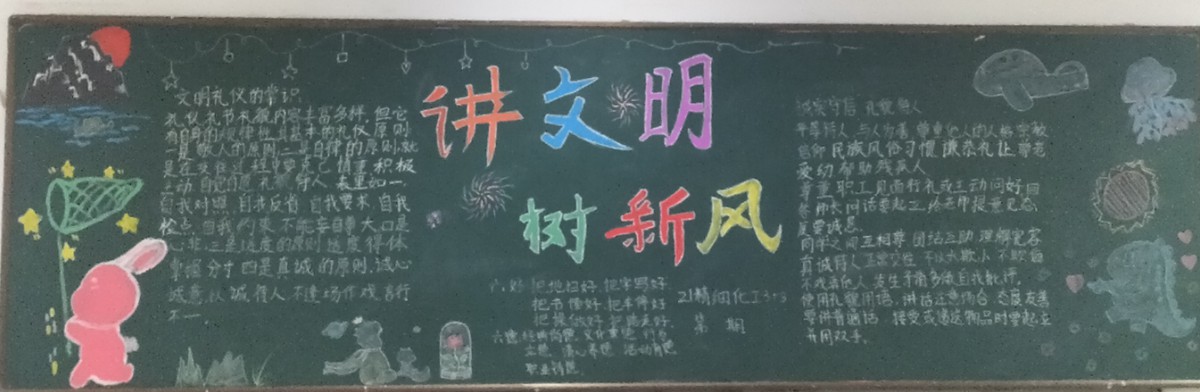 文明礼仪的常识
礼仪礼节礼貌内容丰富多样,但它
有自身的规律性,其基本的礼仪原则
是敬人的原则二是自律的原则,就
是在交往过程中要克己慎重积极
主动自觉自愿礼貌待人表里如一
自我对照,自我反省自我要求自我
检点自我约束不能妄自尊大口是
心非三是适度的原则适度得体
掌握分寸四是真诚的原则,诚心
诚意以诚待人不逢场作戏言行
不一
讲文明
树新风
六好 把地扫好 把字写好
把书读好
21精细化工3+3
第 期
职业情医
诚实守信 礼貌待人
平等待人,与人为善 尊重他人的人格宗教
信仰民族风俗习惯谦恭礼让尊老
爱幼帮助残疾人
尊重职工见面行礼或主动问好回
答师长问话要起立给老师提意见态
度要诚恳
同学之间互相尊 团结互助理解宽容
真诚待人正常交往 不以大欺小不欺侮
不戏弄他人发生矛盾多做自我批评
使用礼貌用语,讲话注意场合 态度友善
要讲普通话 接受或递送物品时要起立
并用双手。